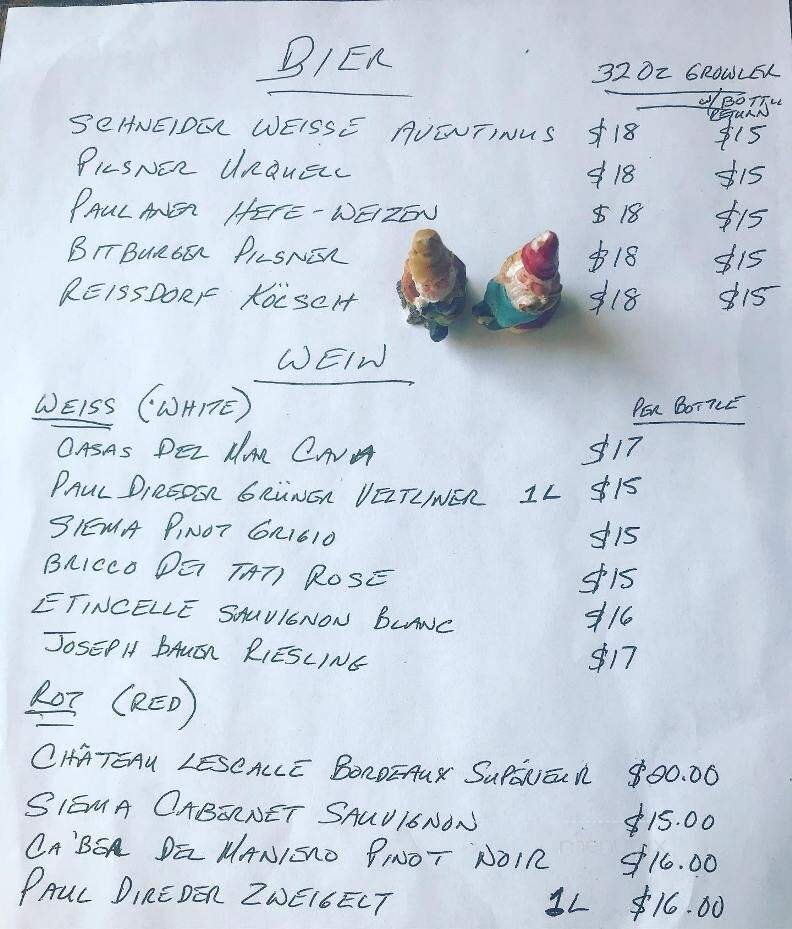 BIER
32 OZ GROWLER
W/ BOTTLE
RETURN
SCHNEIDER WEISSE AVENTINUS $18 $15
PILSNER URQUELL $18 $15
PAULANER HEFE-WEIZEN $18 $15
BITBURGER PILSNER $18 $15
REISSDORF KÖLSCH $18 $15
WEIN
WEISS (WHITE) PER BOTTLE
CASAS DEL MAR CAVA $17
PAUL DIREDER GRÜNER VELTLINER 1L $15
SIEMA PINOT GRIGIO $15
BRICCO DEI TATI ROSE $15
ETINCELLE SAUVIGNON BLANC $16
JOSEPH BAUER RIESLING $17
ROT (RED)
CHÂTEAU LESCALLE BORDEAUX SUPÉRIEUR $20.00
SIEMA CABERNET SAUVIGNON $15.00
CA'BER DEL MANIERO PINOT NOIR $16.00
PAUL DIREDER ZWEIGELT 1L $16.00